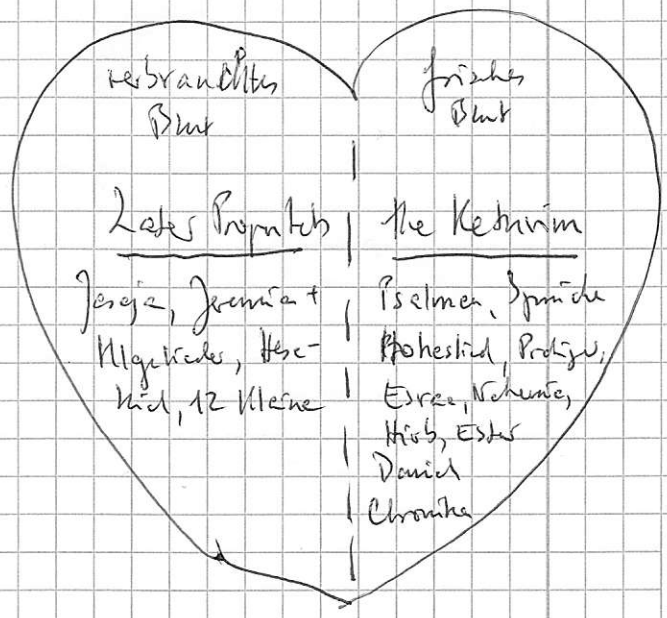 verbrauchtes
Blut
Later Prophets
Jesaja, Jeremia +
Klgelieder, Hese-
kiel, 12 Kleine
frisches
Blut
the Kethuvim
Psalmen, Sprüche
Hoheslied, Prediger,
Esra, Nehemia,
Hiob, Ester
Daniel
Chronika